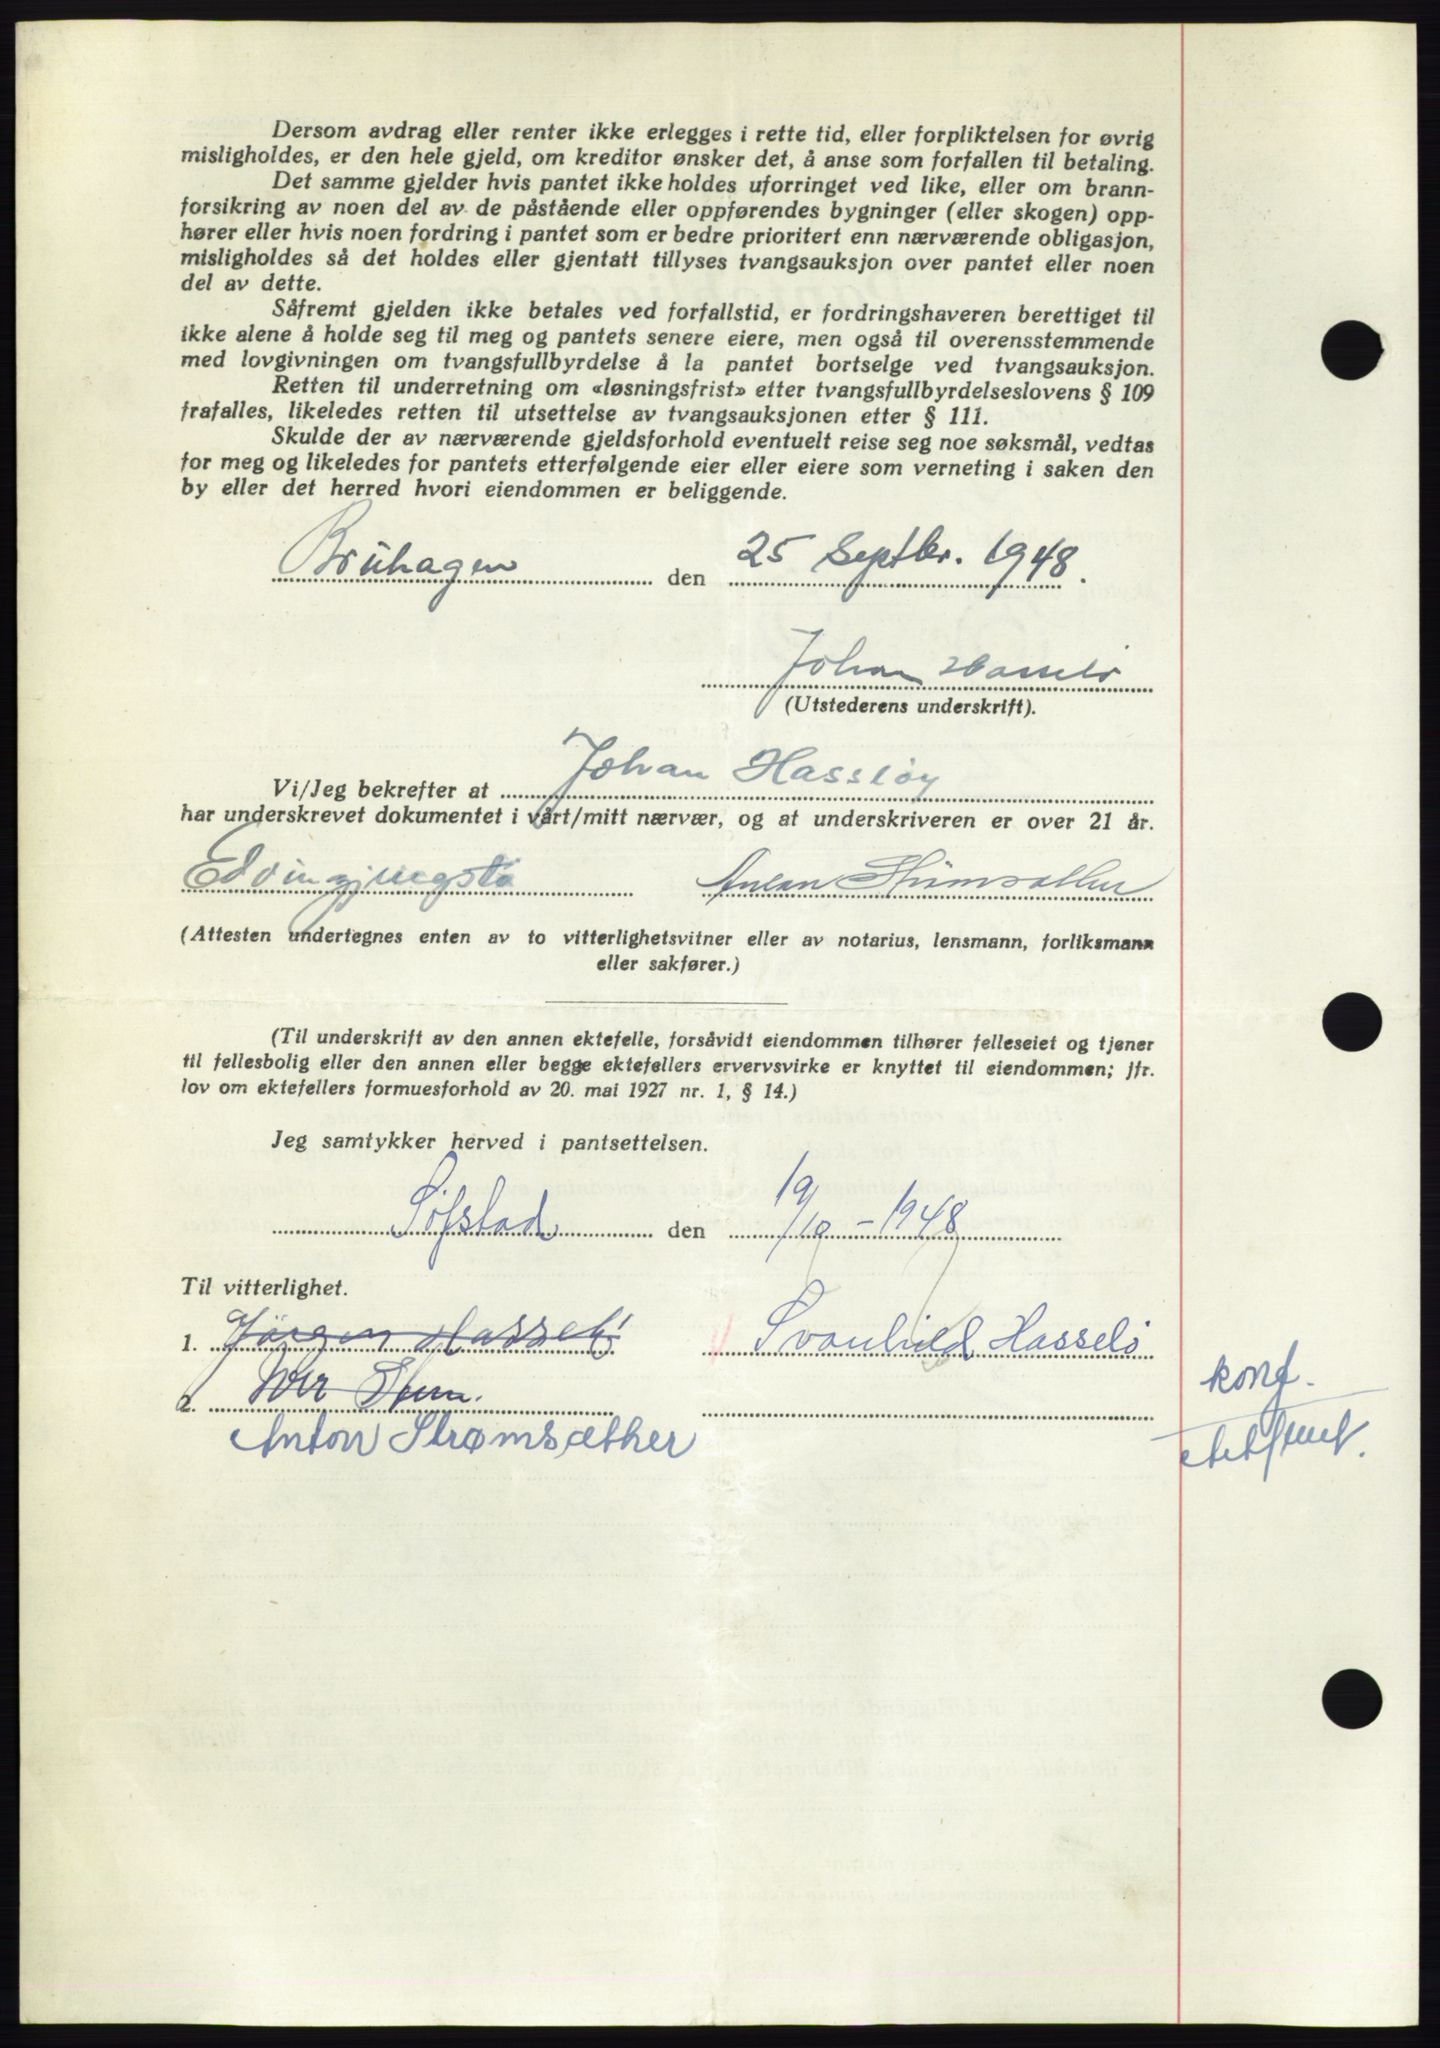 Dersom avdrag eller renter ikke erlegges i rette tid, eller forpliktelsen for øvrig
misligholdes, er den hele gjeld, om kreditor ønsker det, å anse som forfallen til betaling.
Det samme gjelder hvis pantet ikke holdes uforringet ved like, eller om brann-
forsikring av noen del av de påstående eller oppførendes bygninger (eller skogen) opp-
hører eller hvis noen fordring i pantet som er bedre prioritert enn nærværende obligasjon,
misligholdes så det holdes eller gjentatt tillyses tvangsauksjon over pantet eller noen
del av dette.
Såfremt gjelden ikke betales ved forfallstid, er fordringshaveren berettiget til
ikke alene å holde seg til meg og pantets senere eiere, men også til overensstemmende
med lovgivningen om tvangsfullbyrdelse å la pantet bortselge ved tvangsauksjon.
Retten til underretning om «løsningsfrist» etter tvangsfullbyrdelseslovens § 109
frafalles, likeledes retten til utsettelse av tvangsauksjonen etter § 111.
Skulde der av nærværende gjeldsforhold eventuelt reise seg noe søksmål, vedtas
for meg og likeledes for pantets etterfølgende eier eller eiere som verneting i saken den
by eller det herred hvori eiendommen er beliggende.
Brühagen den 25 Septbr. 1948.
Johan Hasselö
(Utstederens underskrift).
Vi/Jeg bekrefter at Johan Hassløy
har underskrevet dokumentet i vårt/mitt nærvær, og at underskriveren er over 21 år.
Edvin Anton Strömsæther
(Attesten undertegnes enten av to vitterlighetsvitner eller av notarius, lensmann, forliksmann
eller sakfører.)
(Til underskrift av den annen ektefelle, forsåvidt eiendommen tilhører felleseiet og tjener
til fellesbolig eller den annen eller begge ektefellers ervervsvirke er knyttet til eiendommen; jfr.
lov om ektefellers formuesforhold av 20. mai 1927 nr. 1, § 14.)
Jeg samtykker herved i pantsettelsen.
den 19/10 - 1948
Til vitterlighet.
1. Jörgen Hasselö Svanhild Hasselö
2.
Anton Strømsæther
konf.